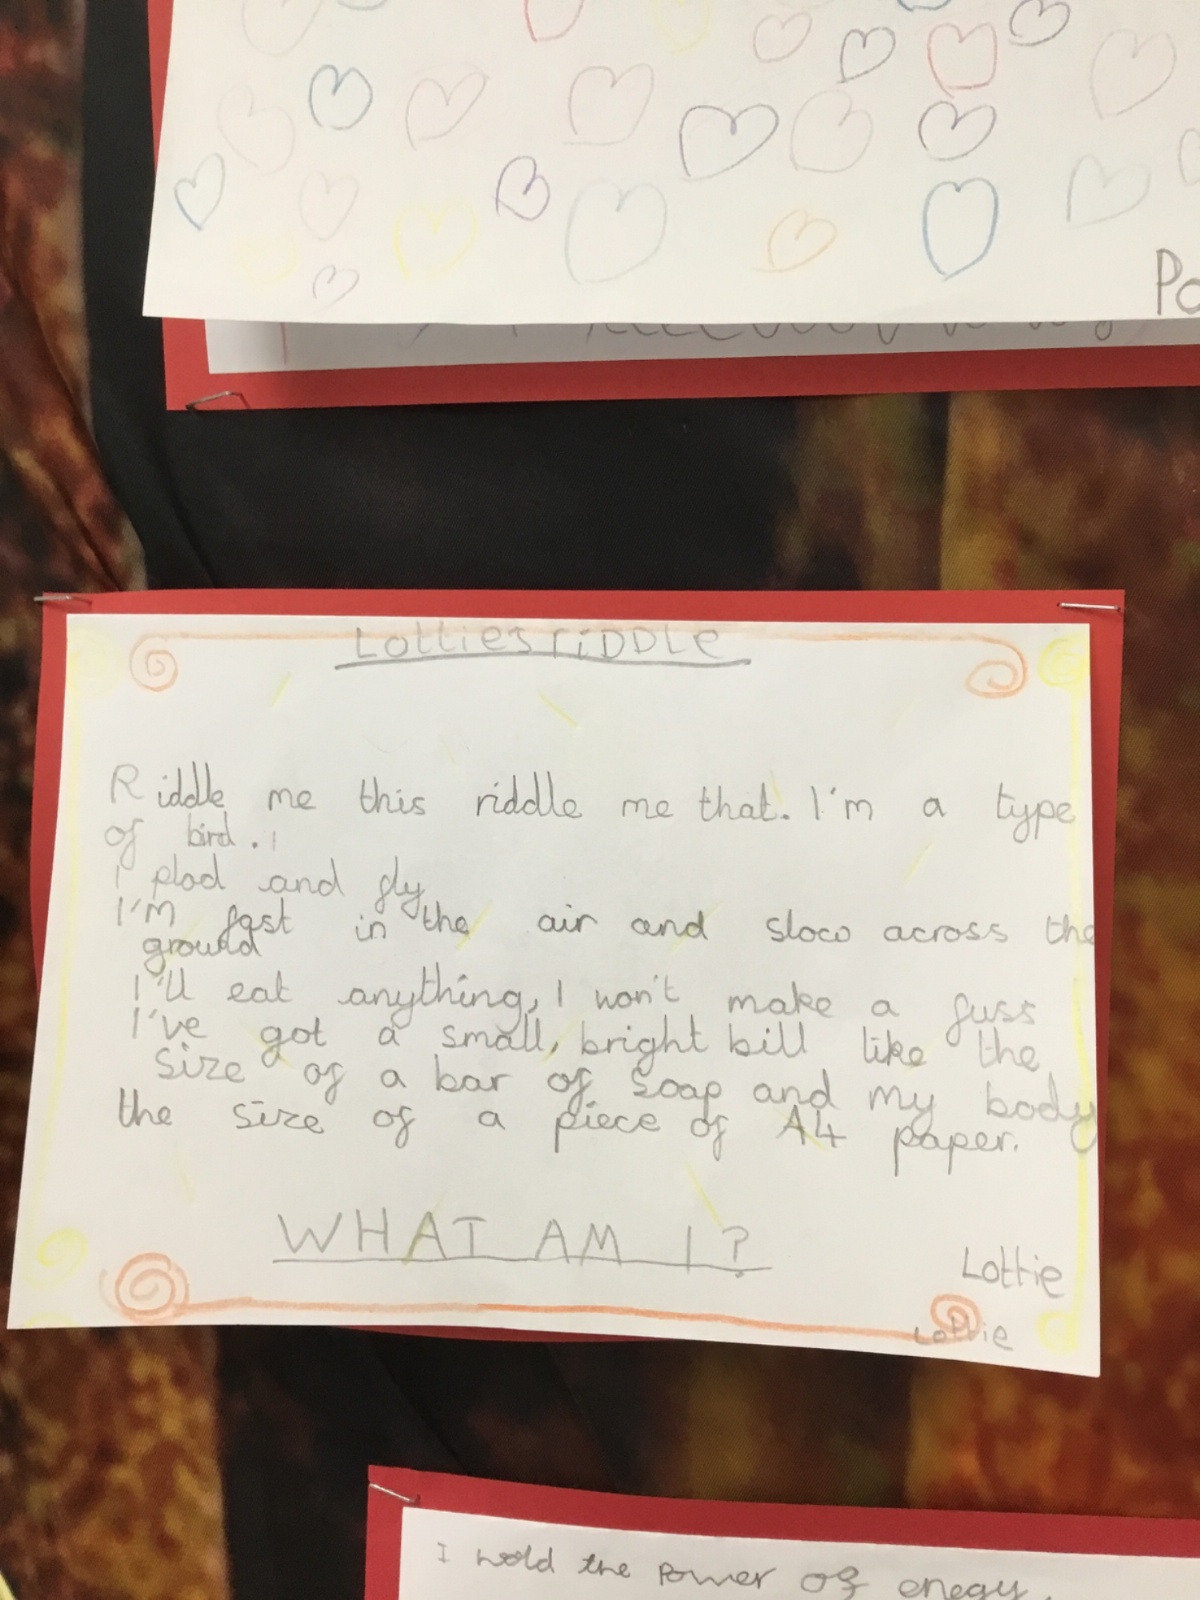 Po
Lotties riDDLe
Riddle me this riddle me that. I'm a type
of bird.
I plod and fly
I'M fast in the air and slow across the
ground
I'll eat anything, I won't make a fuss
I've got a small, bright bill like the
size of a bar of soap and my body
the size of a piece of A4 paper.
WHAT AM I?
Lottie
Lottie
I wold the Power of enegy.